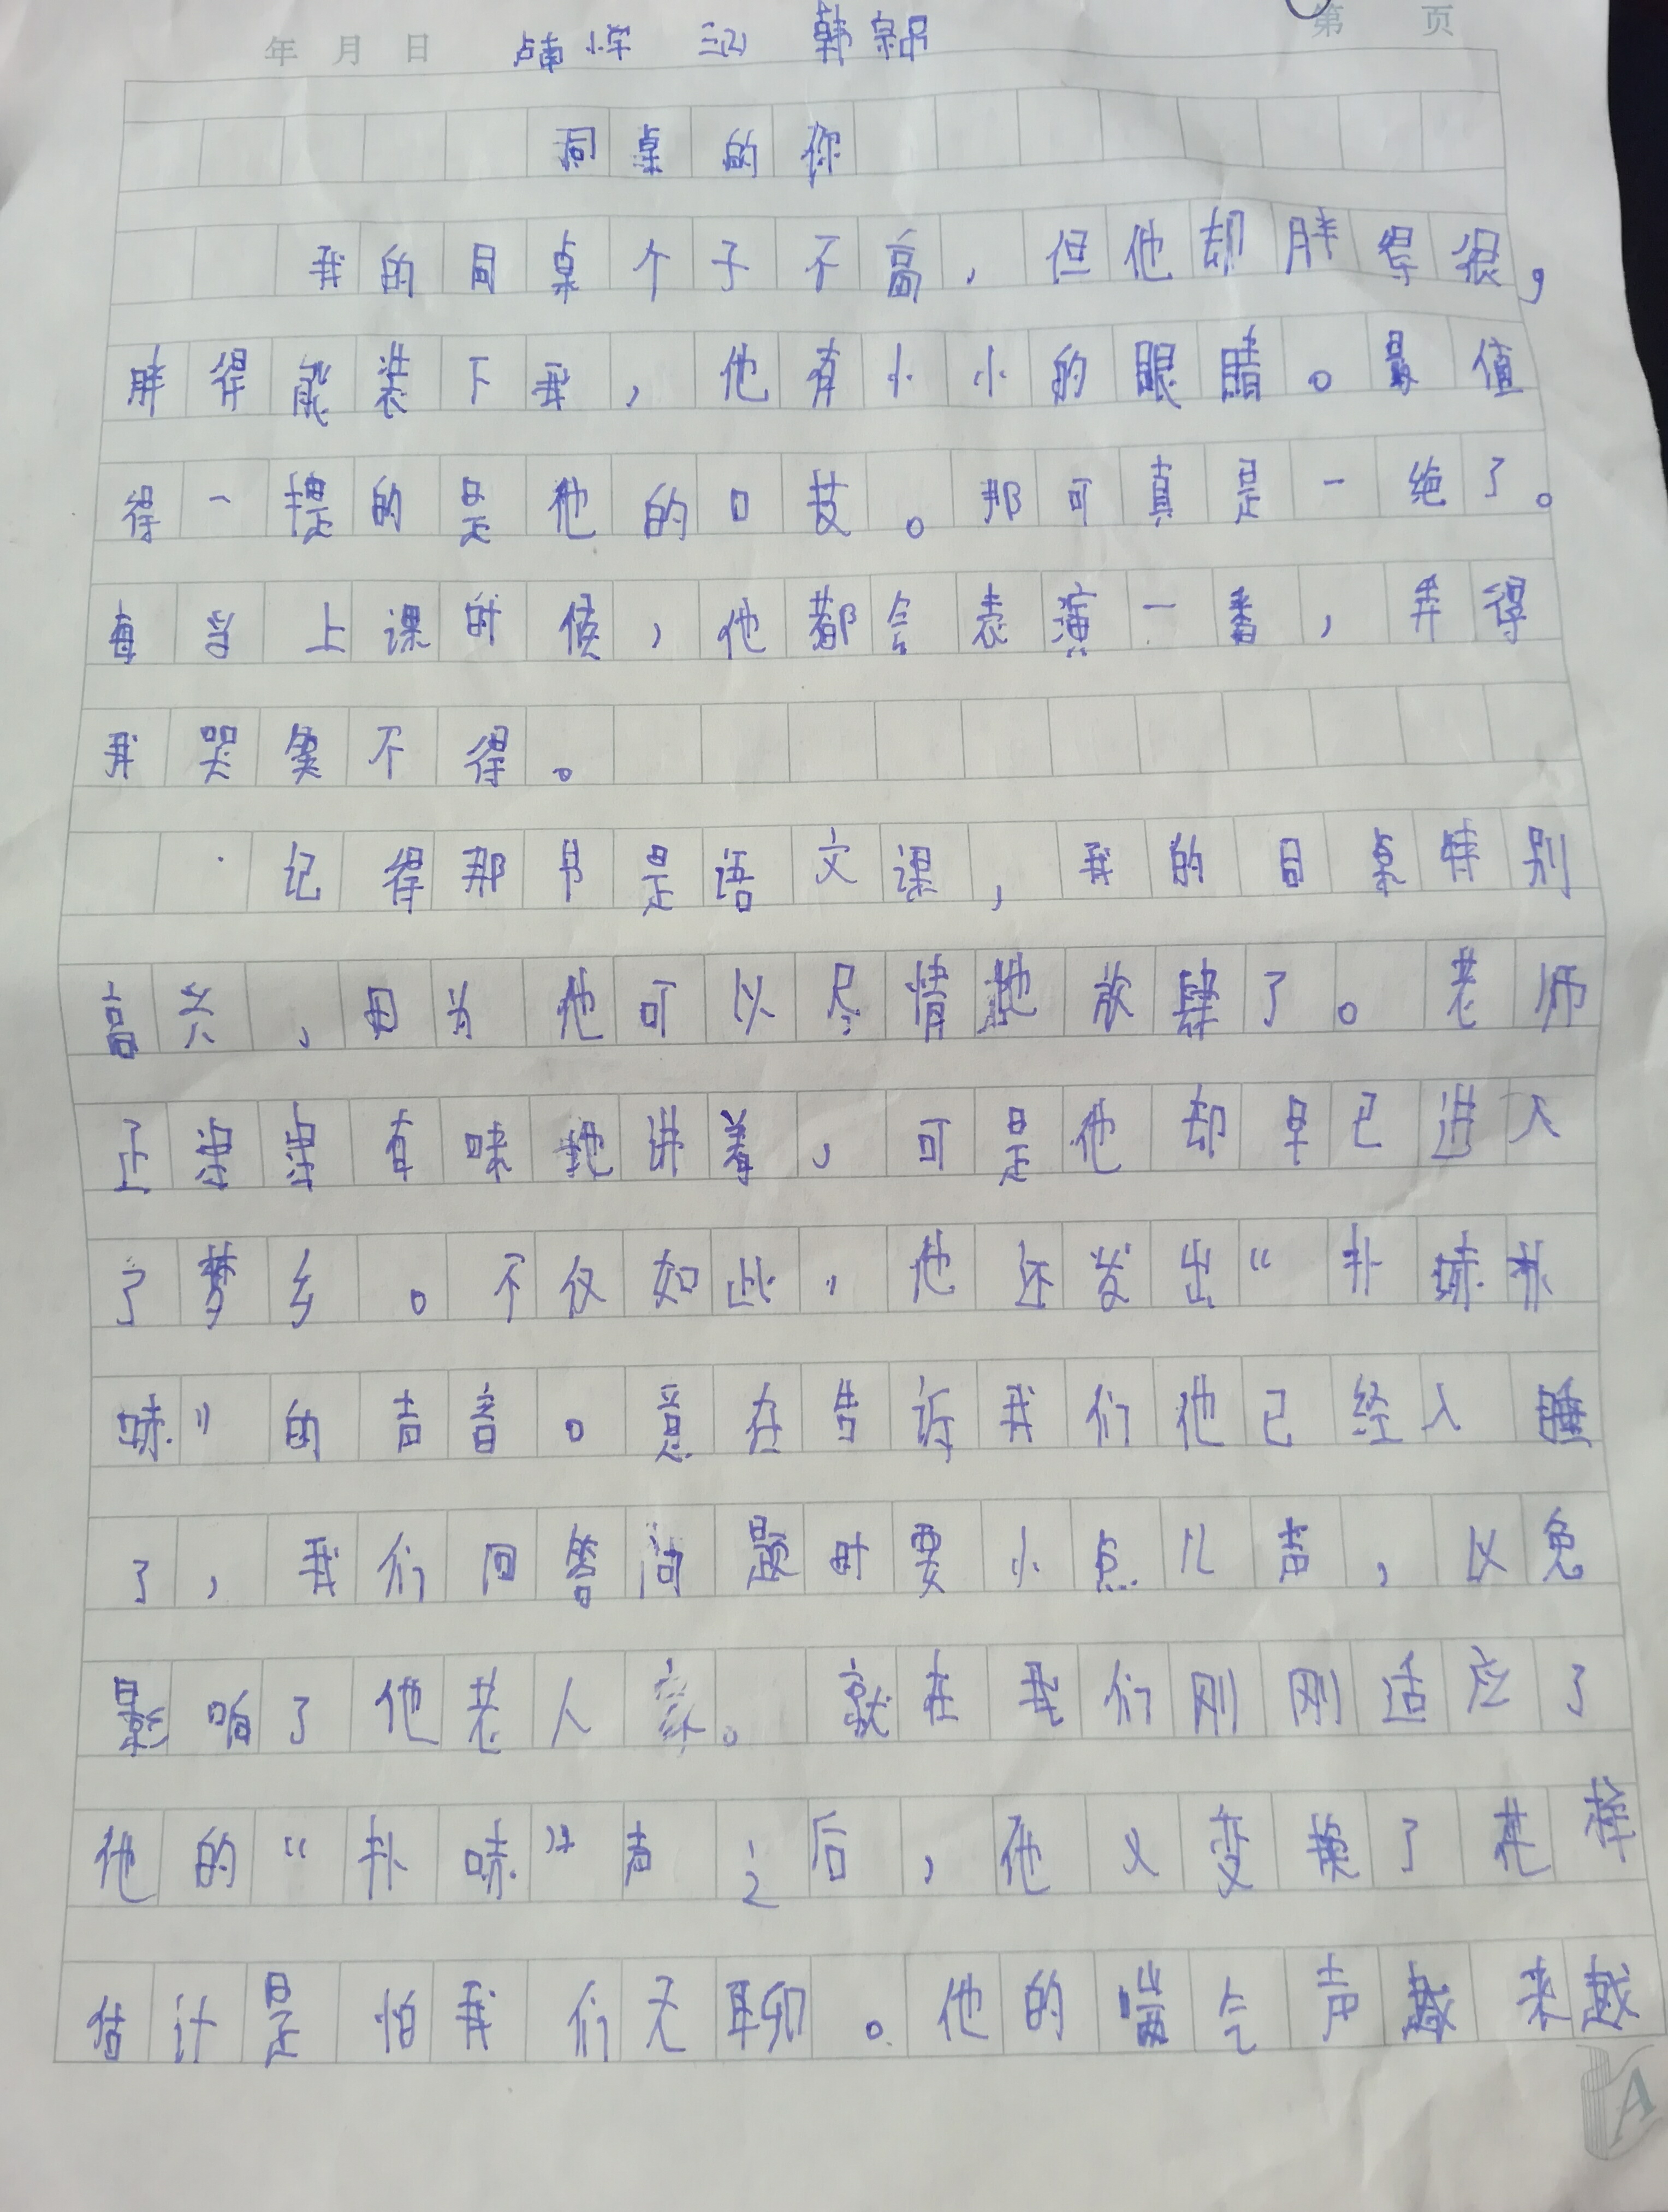 年 月 日 第 页
同桌的你
我的同桌个子不高，但他却胖得很，
胖得能装下我，他有小小的眼睛。最值
得一提的是他的口技。那可真是一绝了。
每当上课时候，他都会表演一番，弄得
我哭笑不得。
记得那节是语文课，我的同桌特别
高兴，因为他可以尽情地放肆了。老师
正津津有味地讲着，可是他却早已进入
了梦乡。不仅如此，他还发出“扑哧扑
哧”的声音。意在告诉我们他已经入睡
了，我们回答问题时要小点儿声，以免
影响了他老人家。就在我们刚刚适应了
他的“扑哧”声之后，他又变换了花样
估计是怕我们无聊。他的喘气声越来越
A